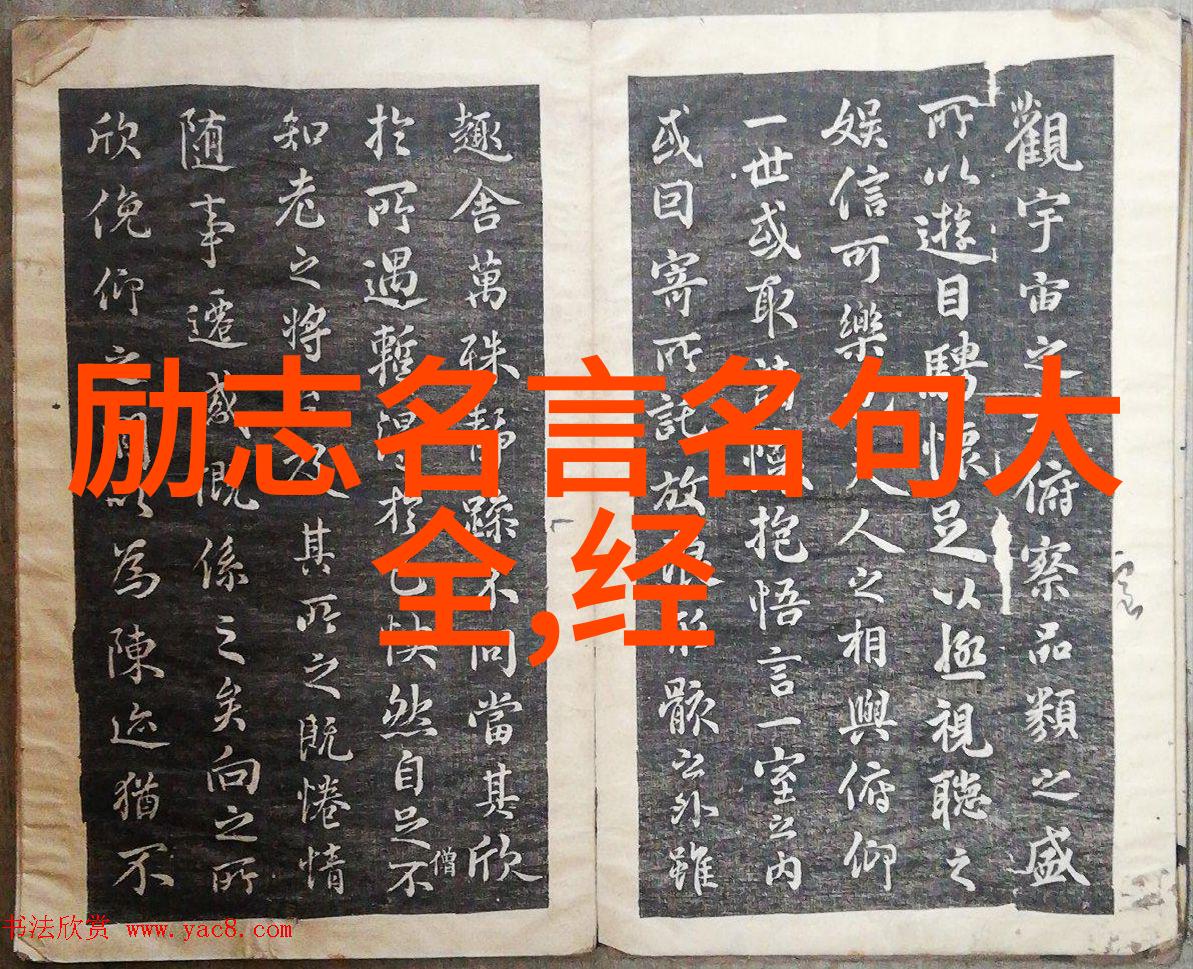 励志名言名句大
全,经
觀宇宙之俯察品類之盛
所以遊目騁懷足以極視聽之
娛信可樂也夫人之相與俯仰
一世或取諸懷抱悟言一室之內
或因寄所託放浪形骸之外雖
趣舍萬殊靜躁不同當其欣
於所遇暫得於己快然自足不
僧
知老之將至及其所之既惓情
随事遷感慨係之矣向之所
欣俛仰之間以為陳迹猶不
书法欣赏 www.yac8.com